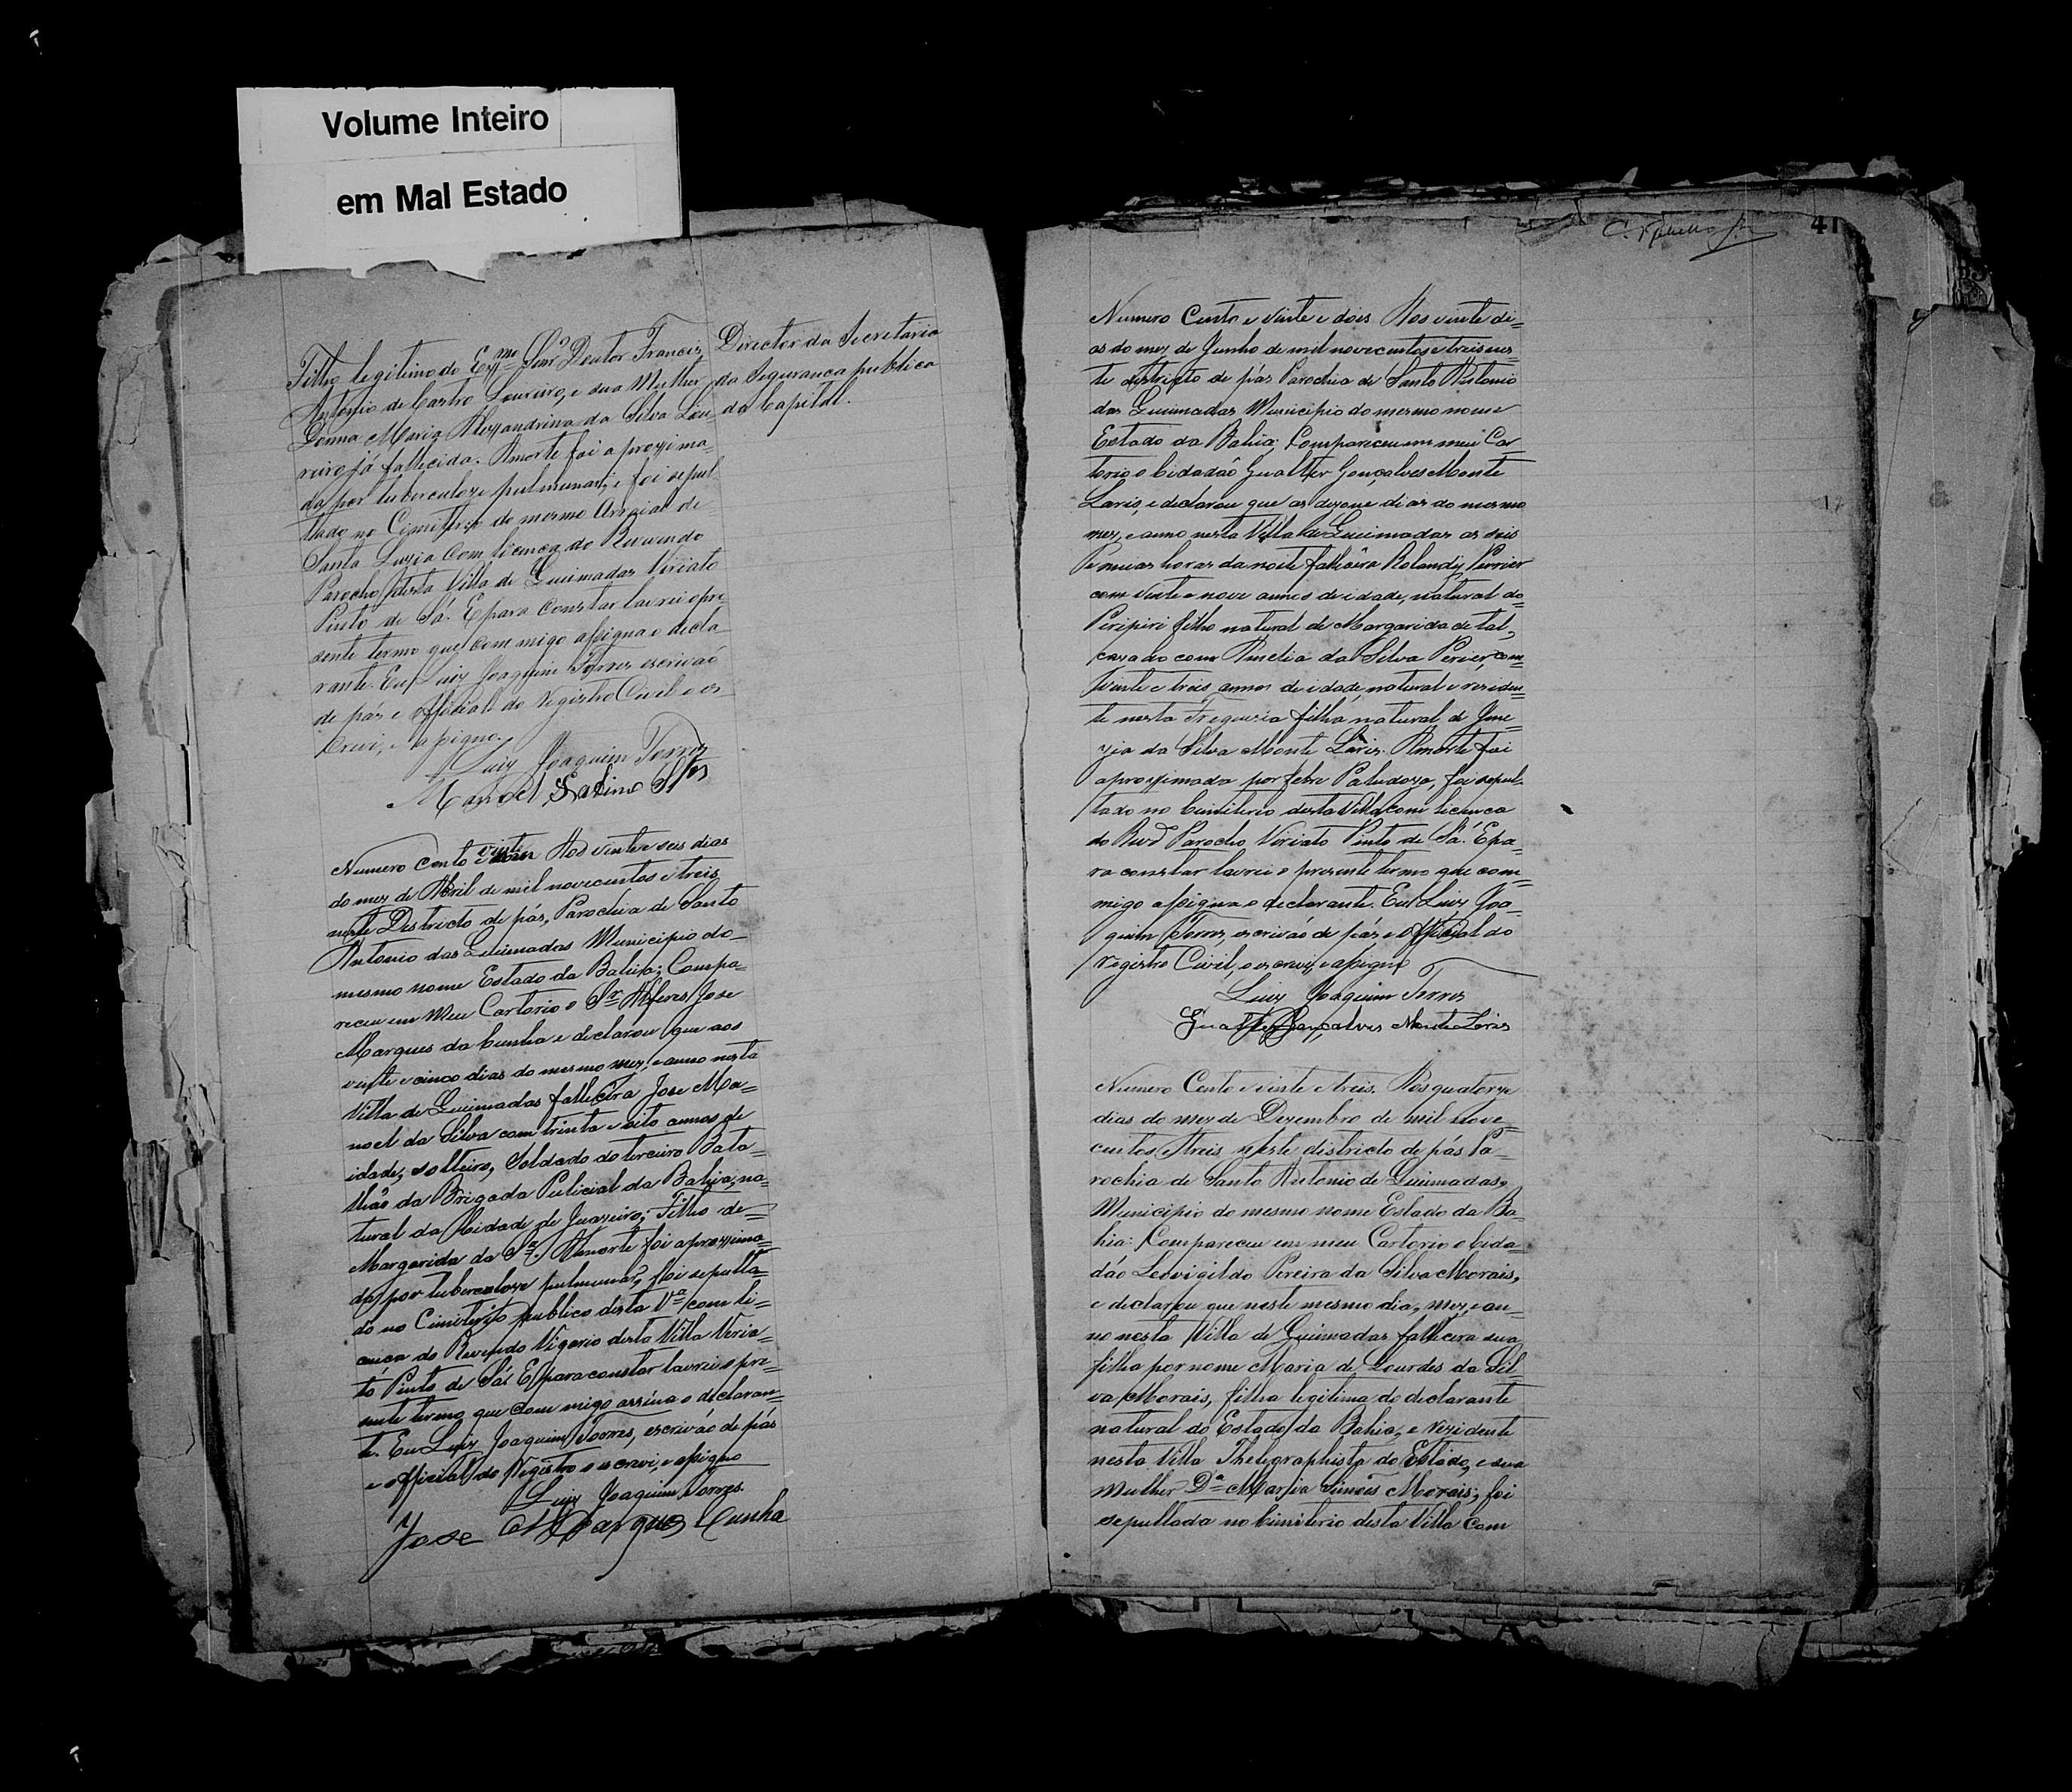 Volume Inteiro
em Mal Estado
Filho legitimo do Exmo Snr. Doutor Francis
Antonio de Castro Loureiro, e sua Mulher
Donna Maria Alexandrina da Silva Lou
reiro já fallecida. Amorte foi a proxima
da por tuberculoze pulmunar, e foi sepul
tado no Cimiterio do mesmo Arraial de
Santa Luzia com licença do Reverendo
Parocho desta Villa de Queimadas Viriato
Pinto de Sá. Epara constar lavrei o pre
sente termo que com migo assigna o decla
rante. Eu Luiz Joaquim Torres escrivaõ
de pás e official do registro Civil o es
crevi, e assigno.
Luiz Joaquim Torres
Manoel Sabino Stos
Director da Secretaria
da Segurança publica
da Capital.
Numero cento e vinte Aos vinte seis dias
do mez de Abril de mil novecentos e treis
neste Districto de pás, Parochia de Santo
Antonio das Queimadas Municipio do
mesmo nome Estado da Bahia; Compa=
receu em Meu Cartorio o Sr Alferes Jose
Marques da Cunha e declarou que aos
vinte e cinco dias do mesmo mez, e anno nesta
Villa de Queimadas fallecêra Jose Ma=
noel da Silva com trinta e oito annos de
idade, solteiro, Soldado do terceiro Bata=
lhão da Brigada Pulicial da Bahia, na=
tural da Cidade de Juazeiro; Filho de=
Margarida da Sa. Amorte foi aproxima=
da por tuberculoze pulmunar, foi sepulta=
do no Cimiterio publico desta Va com li=
cença do Reverendo Vigario desta Villa Viria=
to Pinto de Sá. E para constar lavrei o pre=
sente termo que com migo assina o declaran=
te. Eu Luiz Joaquim Torres, escrivão de pás
e official do Registro o escrevi, e assigno
Luiz Joaquim Torres.
Jose Marques Cunha
41
Numero Cento e vinte e dois Aos vinte di=
as do mez de Junho de mil novecentos e treis nes=
te districto de pás Parochia de Santo Antonio
das Queimadas Municipio do mesmo nome
Estado da Bahia; Compareceu em meu Car
torio o Cidadaõ Gualter Gonçalves Monte
Laris, e declarou que as dezove dias do mesmo
mez, e anno nesta Villa de Queimadas as seis
e meias horas da noite fallecêra Rolandy Perrier
com vinte e nove annos de idade, natural do=
Piripiri filho natural de Margarida de tal,
cazado com Amelia da Silva Perier, com=
vinte e treis annos de idade, natural e residen=
te nesta Freguezia filha natural de Gene=
zia da Silva Monte Laris. Amorte foi
aproximada por febre Paludoza, foi sepul=
tado no Cimiterio desta Villa com licença
do Revd Parocho Viriato Pinto de Sá. Epa=
ra constar lavrei o presente termo que com=
migo assigna o declarante. Eu Luiz Joa=
quim Torres, escrivão de pás e official do
registro Civil, o escrevi, e assigno
Luiz Joaquim Torres
Gualter Gonçalves Monte Laris
Numero Cento e vinte e treis. Aos quatorze
dias do mez de Dezembro de mil nove=
centos e treis neste districto de pás Pa=
rochia de Santo Antonio de Queimadas,
Municipio do mesmo nome Estado da Ba=
hia: Compareceu em meu Cartorio o Cida=
dão Leovigildo Pereira da Silva Morais,
e declarou que neste mesmo dia, mez, e an=
no nesta Villa de Queimadas fallecera sua
filha por nome Maria de Lourdes da Sil=
va Morais, filha legitima do declarante
natural do Estado da Bahia, e rezidente
nesta Villa Thelegraphista do Estado, e sua
Mulher Da Maria Simões Morais; foi
sepultada no Cimiterio desta Villa com